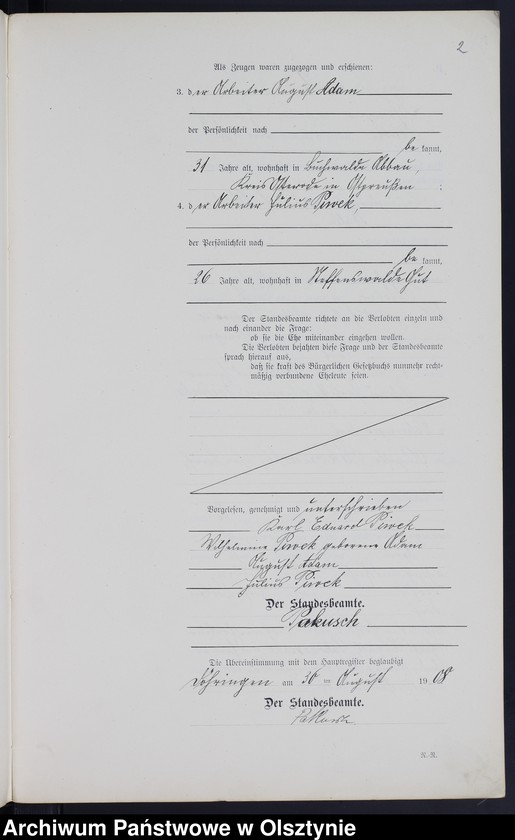 2
Als Zeugen waren zugezogen und erschienen:
3. der Arbeiter August Adam
der Persönlichkeit nach
be kannt,
31 Jahre alt, wohnhaft in Buchwalde Abbau,
Kreis Osterode in Ostpreußen ;
4. der Arbeiter Julius Piwek,
der Persönlichkeit nach
be kannt,
26 Jahre alt, wohnhaft in Steffenswalde Gut
Der Standesbeamte richtete an die Verlobten einzeln und
nach einander die Frage:
ob sie die Ehe miteinander eingehen wollen.
Die Verlobten bejahten diese Frage und der Standesbeamte
sprach hierauf aus,
daß sie kraft des Bürgerlichen Gesetzbuchs nunmehr recht-
mäßig verbundene Eheleute seien.
Vorgelesen, genehmigt und unterschrieben
Karl Eduard Piwek
Wilhelmine Piwek geborene Adam
August Adam
Julius Piwek
Der Standesbeamte.
Pakusch
Die Übereinstimmung mit dem Hauptregister beglaubigt
Döhringen am 30 August 1908
Der Standesbeamte.
R.-R.
Archiwum Państwowe w Olsztynie